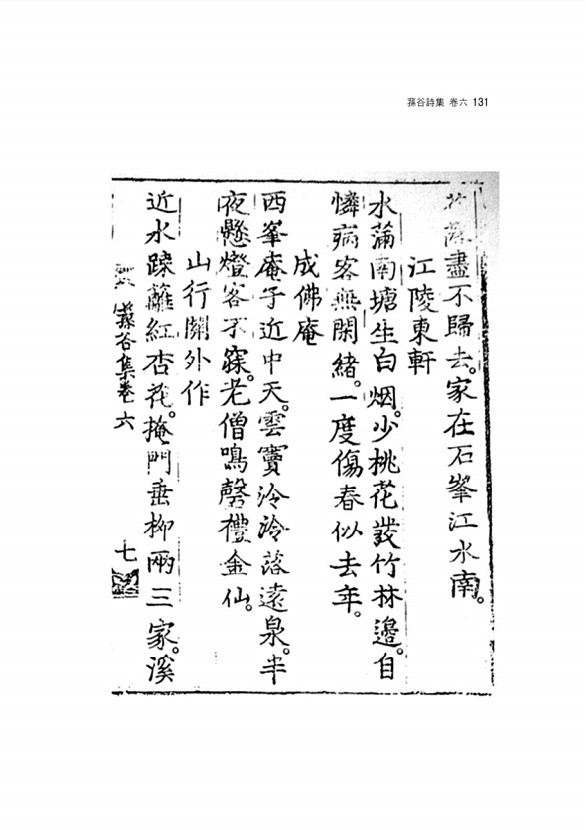 蓀谷詩集 卷六 131
落盡不歸去。家在石峯江水南。
江陵東軒
水滿南塘生白烟。少桃花發竹林邊。自
憐病客無閑緖。一度傷春似去年。
成佛庵
西峯庵子近中天。雲竇泠泠落遠泉。半
夜懸燈客不寐。老僧鳴磬禮金仙。
山行關外作
近水踈籬紅杏花。掩門垂柳兩三家。溪
蓀谷集卷六 七